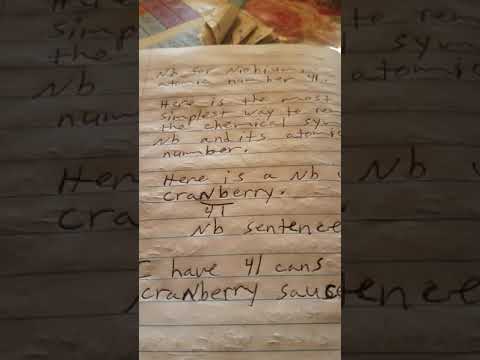 Nb for Niobium,
atomic number 41.
Here is the most
simplest way to re
the chemical sym
Nb and its atomic
number.
Here is a Nb
craNberry.
41
Nb sentence
I have 41 cans
craNberry sauce